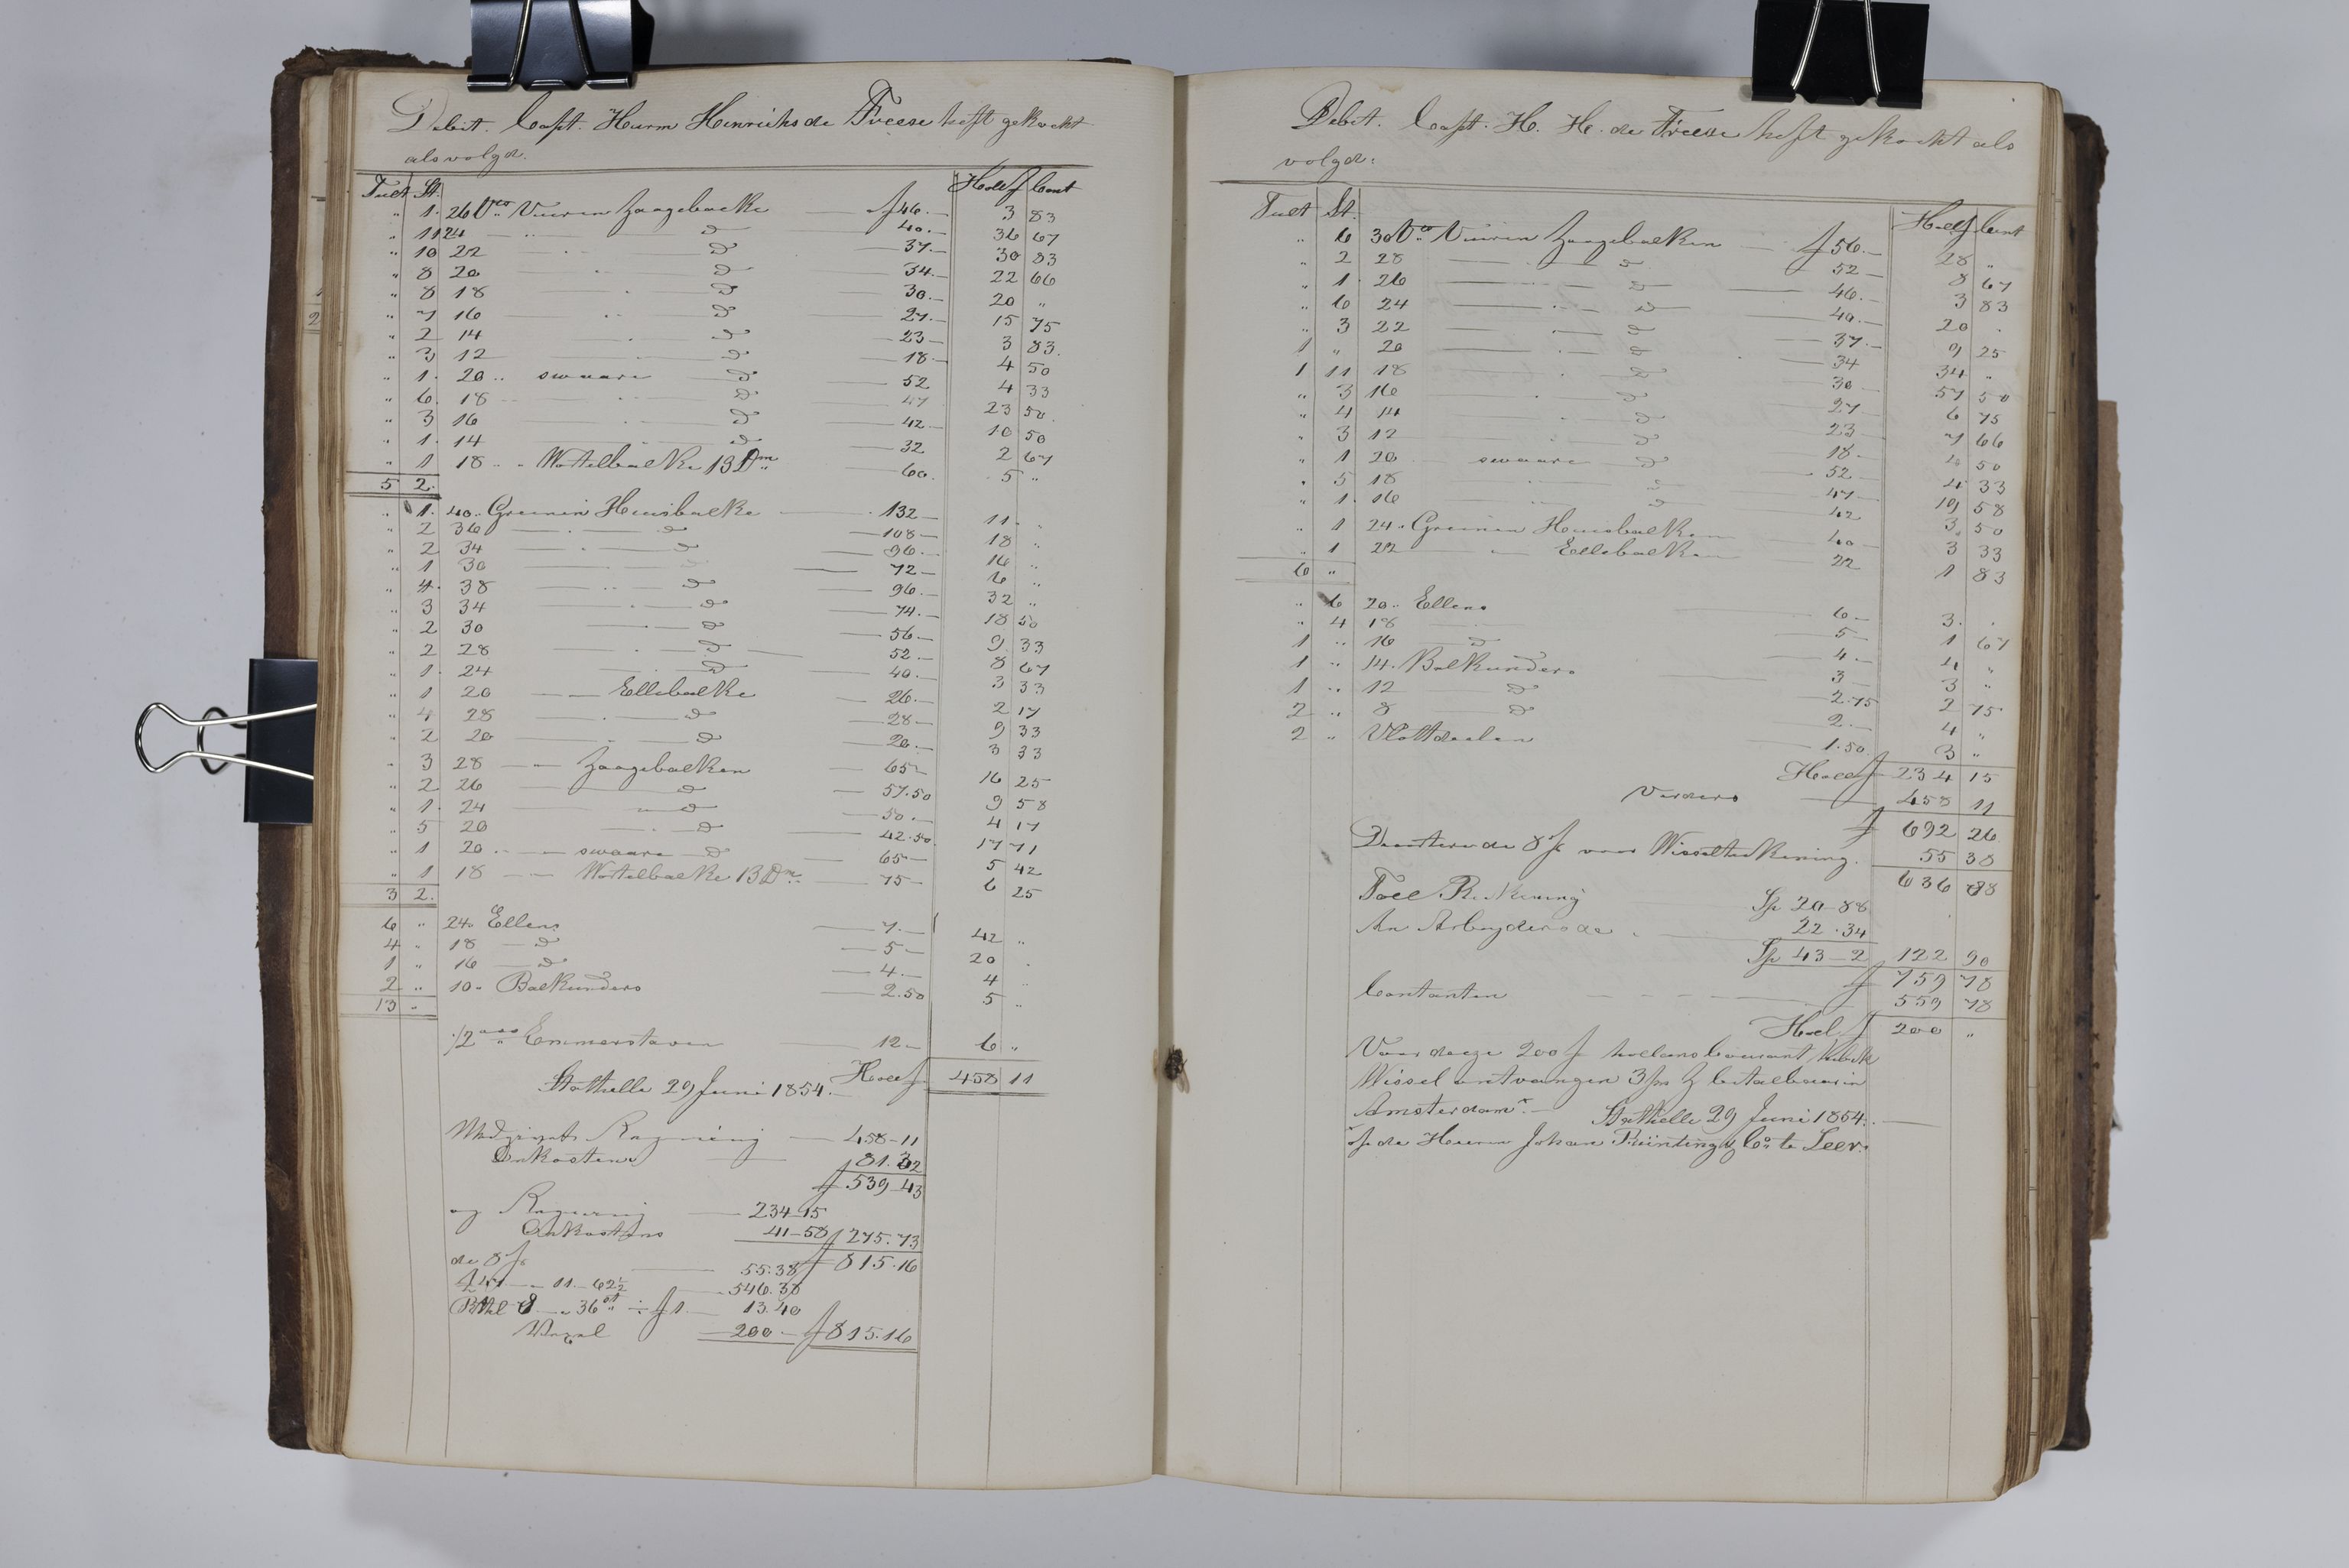 Debit. Capt. Harm Henrichs de Freese heft gekockt
als volgd.
Tult St. Holl f Cent
" 1. 26 Vto Vuuren Zaagebalke f 46.— 3 83
" 11 24 " D 40.— 36 67
" 10 22 " D 37.— 30 83
" 8 20 " D 34.— 22 66
" 8 18 " D 30.— 20 "
" 7 16 " D 27.— 15 75
" 2 14 " D 23— 3 83
" 3 12 " D 18— 4 50
" 1. 20 " swaare D 52 4 33
" 6. 18 " D 47 23 50
" 3 16 " D 42— 10 50
" 1. 14 D 32 2 67
" 1 18 " " Wattelbalke 13 Dm 60. 5 "
5 2.
" 1. 40 " Greinen Huusbalke 132— 11 "
" 2 36 D 108— 18 "
" 2 34 D 96.— 16 "
" 1 30 D 72— 6 "
" 4. 38 D 96.— 32 "
" 3 34 D 74.— 18 50
" 2 30 D 56— 9 33
" 2 28 D 52.— 8 67
" 1. 24 D 40.— 3 33
" 1 20 Ellebalke 26.— 2 17
" 4 28 D 28— 9 33
" 2 20 D 20.— 3 33
" 3 28 — " Zaagebalken 65— 16 25
" 2 26 D 57.50 9 58
" 1. 24 " D 50.— 4 17
" 5 20 D 42.50 17 71
" 1 20 " — swaare D 65— 5 42
" 1 18 — " Wattelbalke 13 Dm 75— 6 25
3 2.
6 " 24 " Ellens 7.— 42 "
4 " 18 — D 5— 20 .
1 " 16 — D 4.— 4 "
2 " 10 " Balkunders 2.50 5 "
13 "
1/2 Emmerstaven 12— 6 "
Holl f 458 11
Stathelle 29 Juni 1854.—
458–11
Onkosten 81.32
f 539–43
234–15
41–58 f 275.73
de 8 pC 55.38 f 815.16
11.— 62½ 546.38
36 ÷ f 1 13.40
200.— f 815.16
Debet. Capt. H. H. de Freese heft gekockt als
volgd:
Tult St. Holl f Cent
" 6 30 Vto Vuuren Zaagebalken f 56.— 28 "
" 2 28 D 52— 8 67
" 1. 26 D 46.— 3 83
" 6 24 D 40.— 20 .
" 3 22 D 37.— 9 25
1 " 20 D 34 34 "
1 11 18 D 30— 57 50
" 3 16 D 27— 6 75
" 4 14 D 23— 7 66
" 3 12 D 18— 4 50
" 1 20 swaare D 52— 4 33
" 5 18 D 47— 19 58
" 1. 16 D 42 3 50
" 1 24 " Greinen Huusbalken 40— 3 33
" 1 22 " Ellebalken 22 1 83
6 "
" 6 20 " Ellens 6— 3. .
" 4 18 5— 1 67
1 " 16 D 4.— 4 "
1 " 14. Balkunders 3— 3 "
1 " 12 D 2.75 2 75
2 " 8 D 2.— 4 "
2 " Vlottdeelen 1.50 3 "
Holl f 234 15
Verders 458 11
f 692 26
de 8 pC voor Wisseltrekening. 55 38
636 88
Toll Rekening Sp 20–88
An Arbeyders de 22.34
Sp 43–2 122 90
f 759 78
Contanten 559 78
Holl f 200 "
Voor deeze 200 f hollans Courant hebik
Wissel ontvangen 3 betaalbaar in
Amsterdam.— Stathelle 29 Juni 1854.—
op de Heeren Johan Büntingh Co. te Leer.